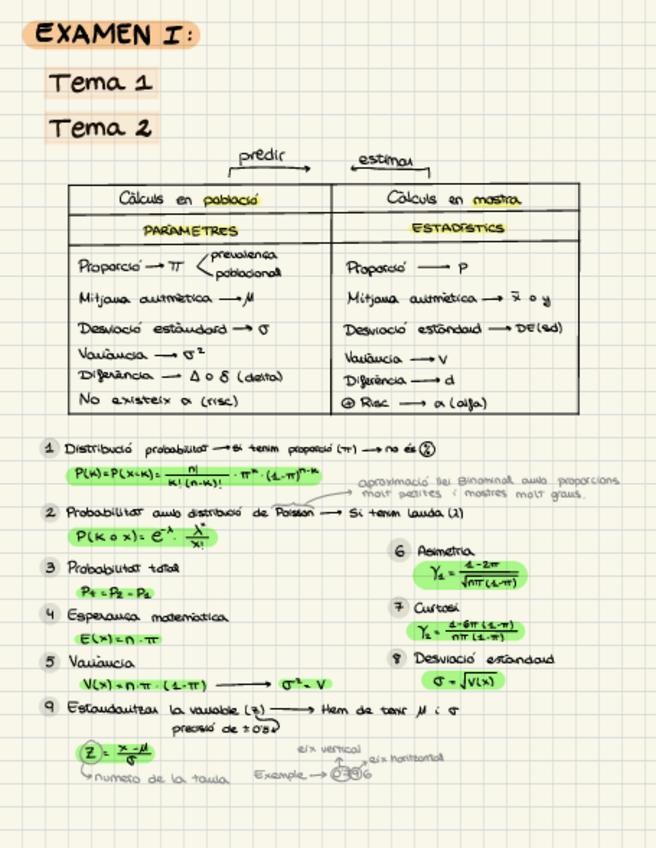 EXAMEN I:
Tema 1
Tema 2
predir
estimar
Càlculs en població
Càlculs en mostra
PARÀMETRES
ESTADÍSTICS
Proporció → π < prevalença
poblacional
Proporció → p
Mitjana aritmètica → μ
Mitjana aritmètica → x̄ o y
Desviació estàndard → σ
Desviació estàndard → DE(sd)
Variància → σ²
Variància → V
Diferència → Δ o δ (delta)
Diferència → d
No existeix α (risc)
⊕ Risc → α (alfa)
1 Distribució probabilitat → si tenim proporció (π) → no és
P(K)=P(X=K)= n! / K!(n-K)! · π^K · (1-π)^n-K
aproximació llei Binominal amb proporcions
molt petites i mostres molt grans.
2 Probabilitat amb distribució de Poisson → Si tenim lauda (λ)
P(K o x) = e^-λ · λ^x / x!
3 Probabilitat total
4 Esperança matemàtica
E(x) = n · π
5 Variància
V(x) = n · π · (1-π) → σ² = V
6 Asimetria
γ₁ = 1-2π / √nπ(1-π)
7 Curtosi
γ₂ = 1-6π(1-π) / nπ(1-π)
8 Desviació estàndard
σ = √V(x)
9 Estandaritzar la variable (Z) → Hem de tenir μ i σ
precisió de ± 0'5
Z = x-μ / σ
numero de la taula
eix vertical
eix horitzontal
Exemple →